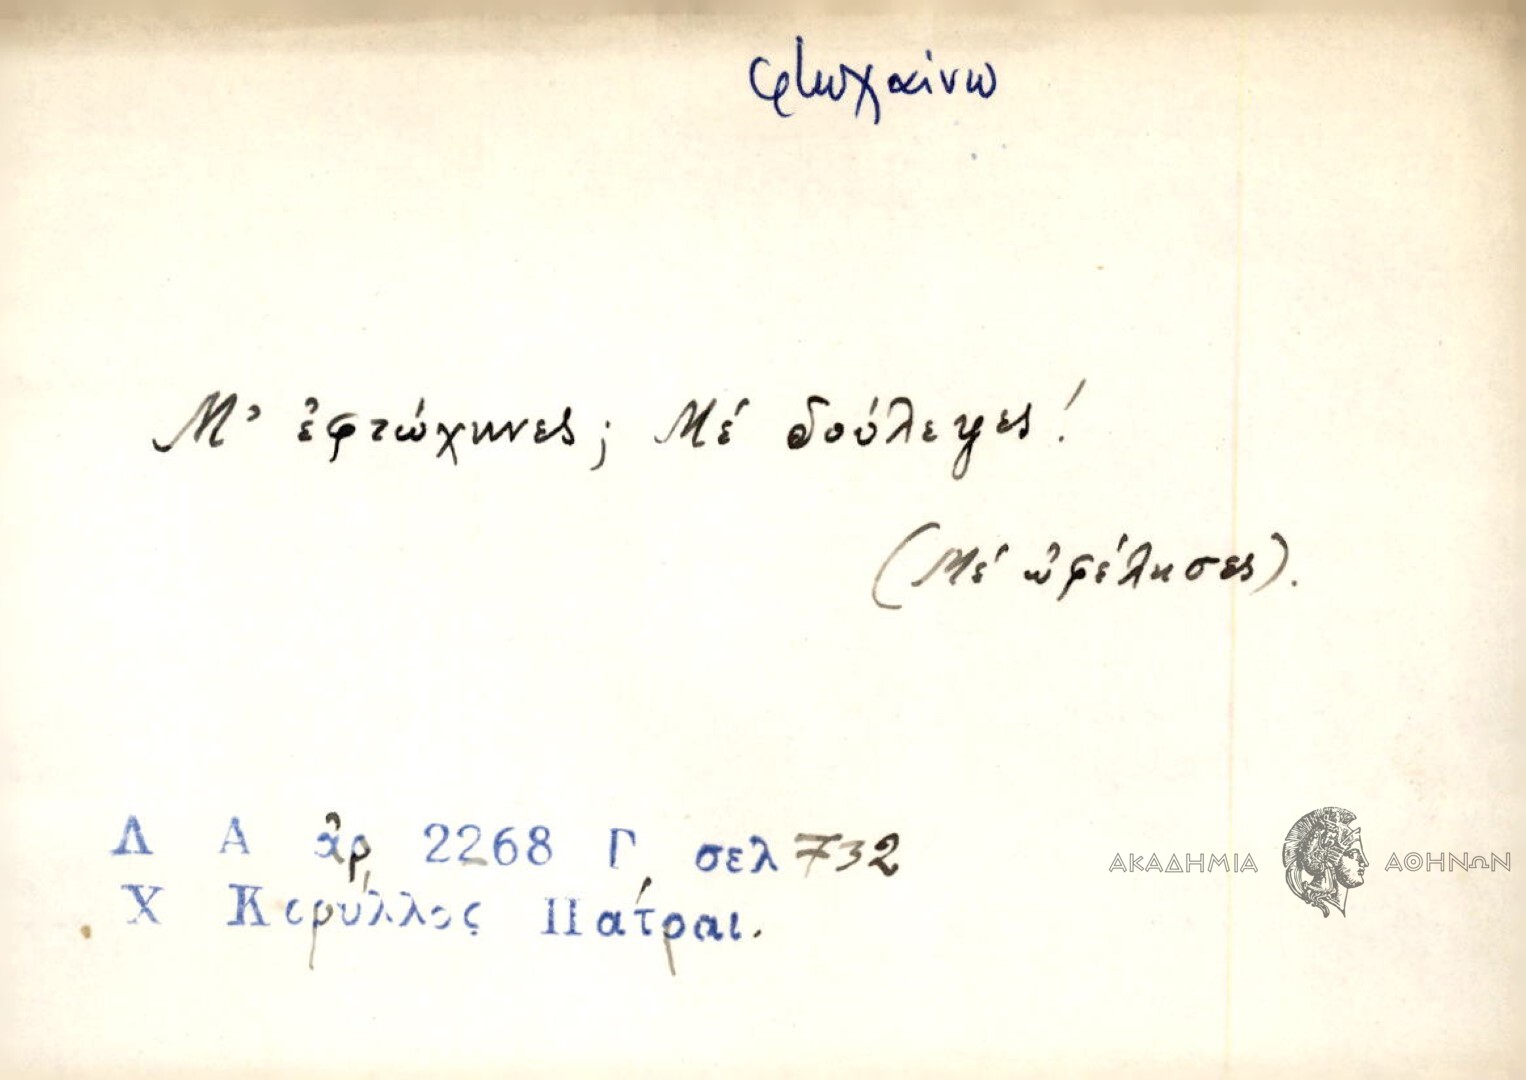 φτωχαίνω
Μ' ἐφτώχηνες; Μέ δούλεψες!
(Μέ ὠφέλησες).
Λ Α ἀρ 2268 Γ, σελ 732
Χ Κορύλλος Πάτραι.
ΑΚΑΔΗΜΙΑ ΑΘΗΝΩΝ